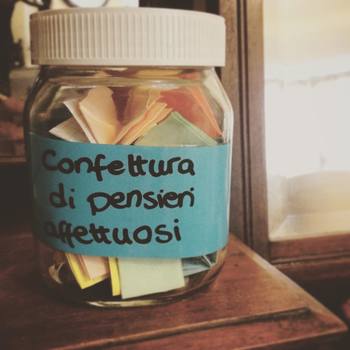 Confettura
di pensieri
affettuosi